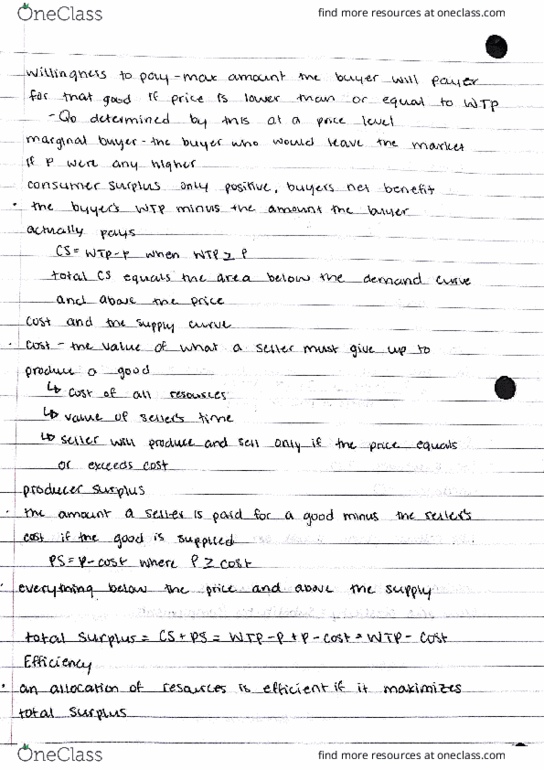 OneClass find more resources at oneclass.com
willingness to pay - max amount the buyer will payer
for that good if price is lower than or equal to WTP
- QD determined by this at a price level
marginal buyer - the buyer who would leave the market
if P were any higher
consumer surplus only positive, buyers net benefit
• the buyer's WTP minus the amount the buyer
actually pays
CS = WTP-P when WTP ≥ P
total CS equals the area below the demand curve
and above the price
cost and the supply curve
• cost - the value of what a seller must give up to
produce a good
↳ cost of all resources
↳ value of seller's time
↳ seller will produce and sell only if the price equals
or exceeds cost
producer surplus
• the amount a seller is paid for a good minus the seller's
cost if the good is supplied
PS = P-cost where P ≥ cost
• everything below the price and above the supply
total surplus = CS + PS = WTP-P + P-cost = WTP-cost
Efficiency
• an allocation of resources is efficient if it maximizes
total surplus
OneClass find more resources at oneclass.com